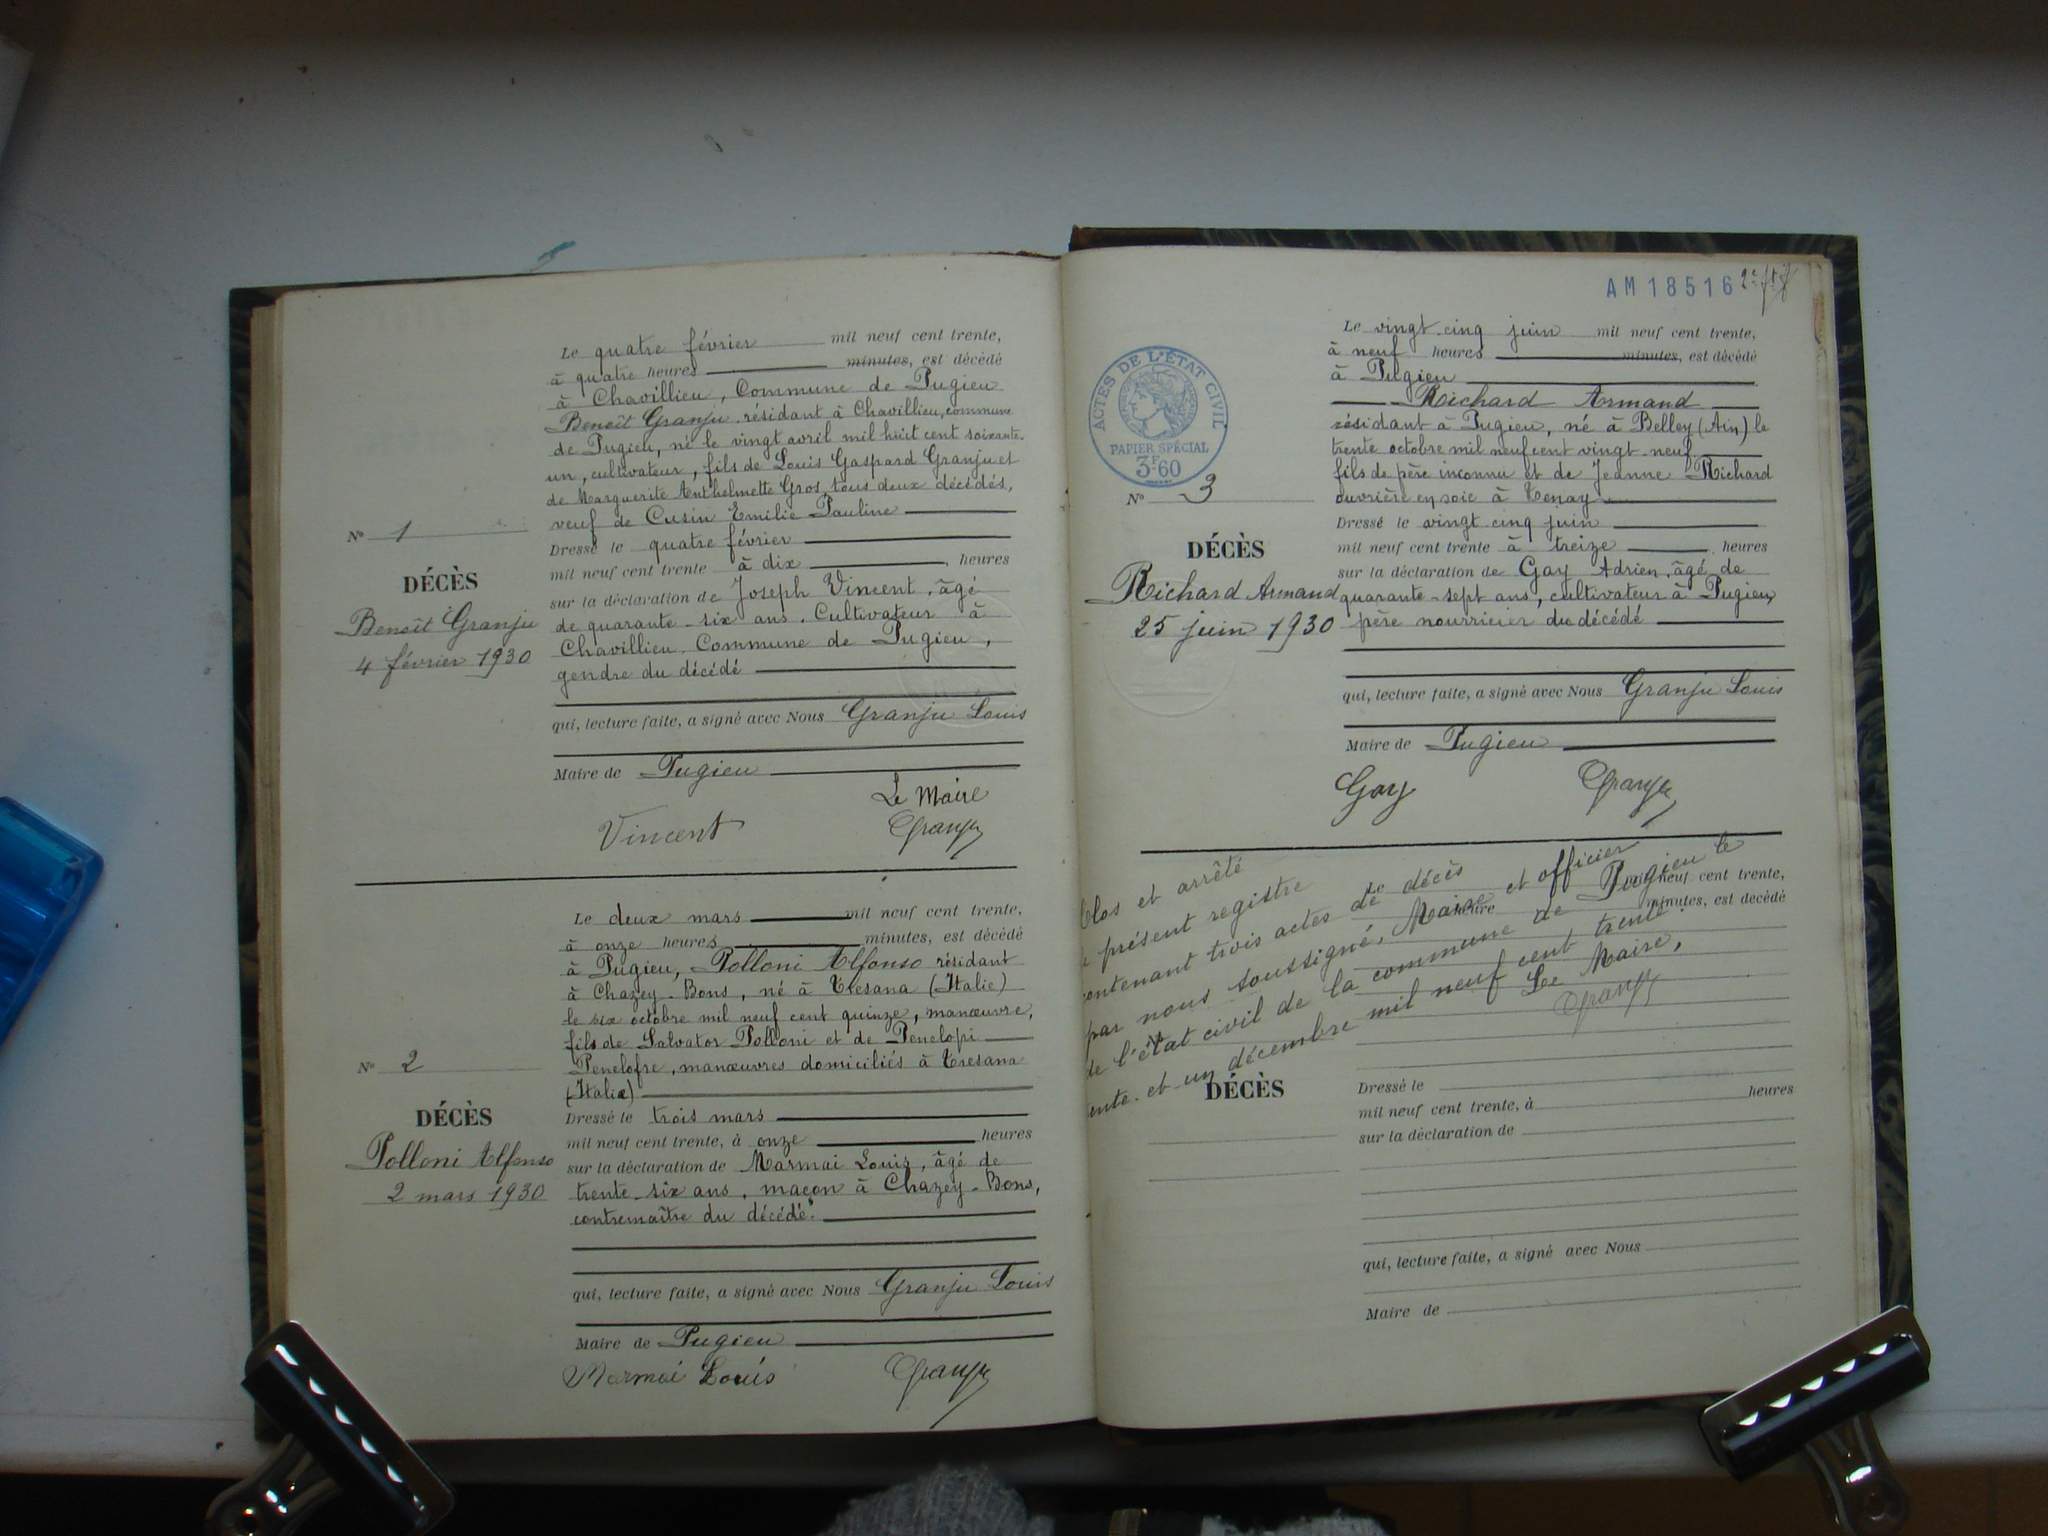 Le quatre février mil neuf cent trente,
à quatre heures minutes, est décédé
à Chavillieu, Commune de Pugieu
Benoît Granju, résidant à Chavillieu, commune
de Pugieu, né le vingt avril mil huit cent soixante-
un, cultivateur, fils de Louis Gaspard Granju et
de Marguerite Anthelmette Gros, tous deux décédés,
veuf de Cusin Emilie Pauline
Dressé le quatre février
mil neuf cent trente à dix, heures
sur la déclaration de Joseph Vincent, âgé
de quarante-six ans, Cultivateur à
Chavillieu, Commune de Pugieu,
gendre du décédé
qui, lecture faite, a signé avec Nous Granju Louis
Maire de Pugieu
Le Maire
Vincent Granju
No 1
DÉCÈS
Benoît Granju
4 février 1930
Le deux mars mil neuf cent trente,
à onze heures minutes, est décédé
à Pugieu, Polloni Alfonso résidant
à Chazey-Bons, né à Tresana (Italie)
le six octobre mil neuf cent quinze, manœuvre,
fils de Salvator Polloni et de Penelopi
Penelofre, manœuvres domiciliés à Tresana
(Italie)
Dressé le trois mars
mil neuf cent trente, à onze heures
sur la déclaration de Marmai Louis, âgé de
trente-six ans, maçon à Chazey-Bons,
contremaître du décédé.
qui, lecture faite, a signé avec Nous Granju Louis
Maire de Pugieu
Marmai Louis Granju
No 2
DÉCÈS
Polloni Alfonso
2 mars 1930
AM18516
ACTES DE L'ÉTAT CIVIL
PAPIER SPÉCIAL
3F.60
Le vingt cinq juin mil neuf cent trente,
à neuf heures minutes, est décédé
à Pugieu
Richard Armand
résidant à Pugieu, né à Belley (Ain) le
trente octobre mil neuf cent vingt-neuf,
fils de père inconnu et de Jeanne Richard
ouvrière en soie à Tenay
Dressé le vingt cinq juin
mil neuf cent trente à treize, heures
sur la déclaration de Gay Adrien, âgé de
quarante-sept ans, cultivateur à Pugieu,
père nourricier du décédé
qui, lecture faite, a signé avec Nous Granju Louis
Maire de Pugieu
Gay Granju
No 3
DÉCÈS
Richard Armand
25 juin 1930
Clos et arrêté
présent registre
contenant trois actes de décès
par nous soussigné, Maire et officier
de l'état civil de la commune de Pugieu le
trente-et un décembre mil neuf cent trente.
Le Maire,
Granju
Le mil neuf cent trente,
heure minutes, est décédé
No
DÉCÈS
Dressé le
mil neuf cent trente, à heures
sur la déclaration de
qui, lecture faite, a signé avec Nous
Maire de